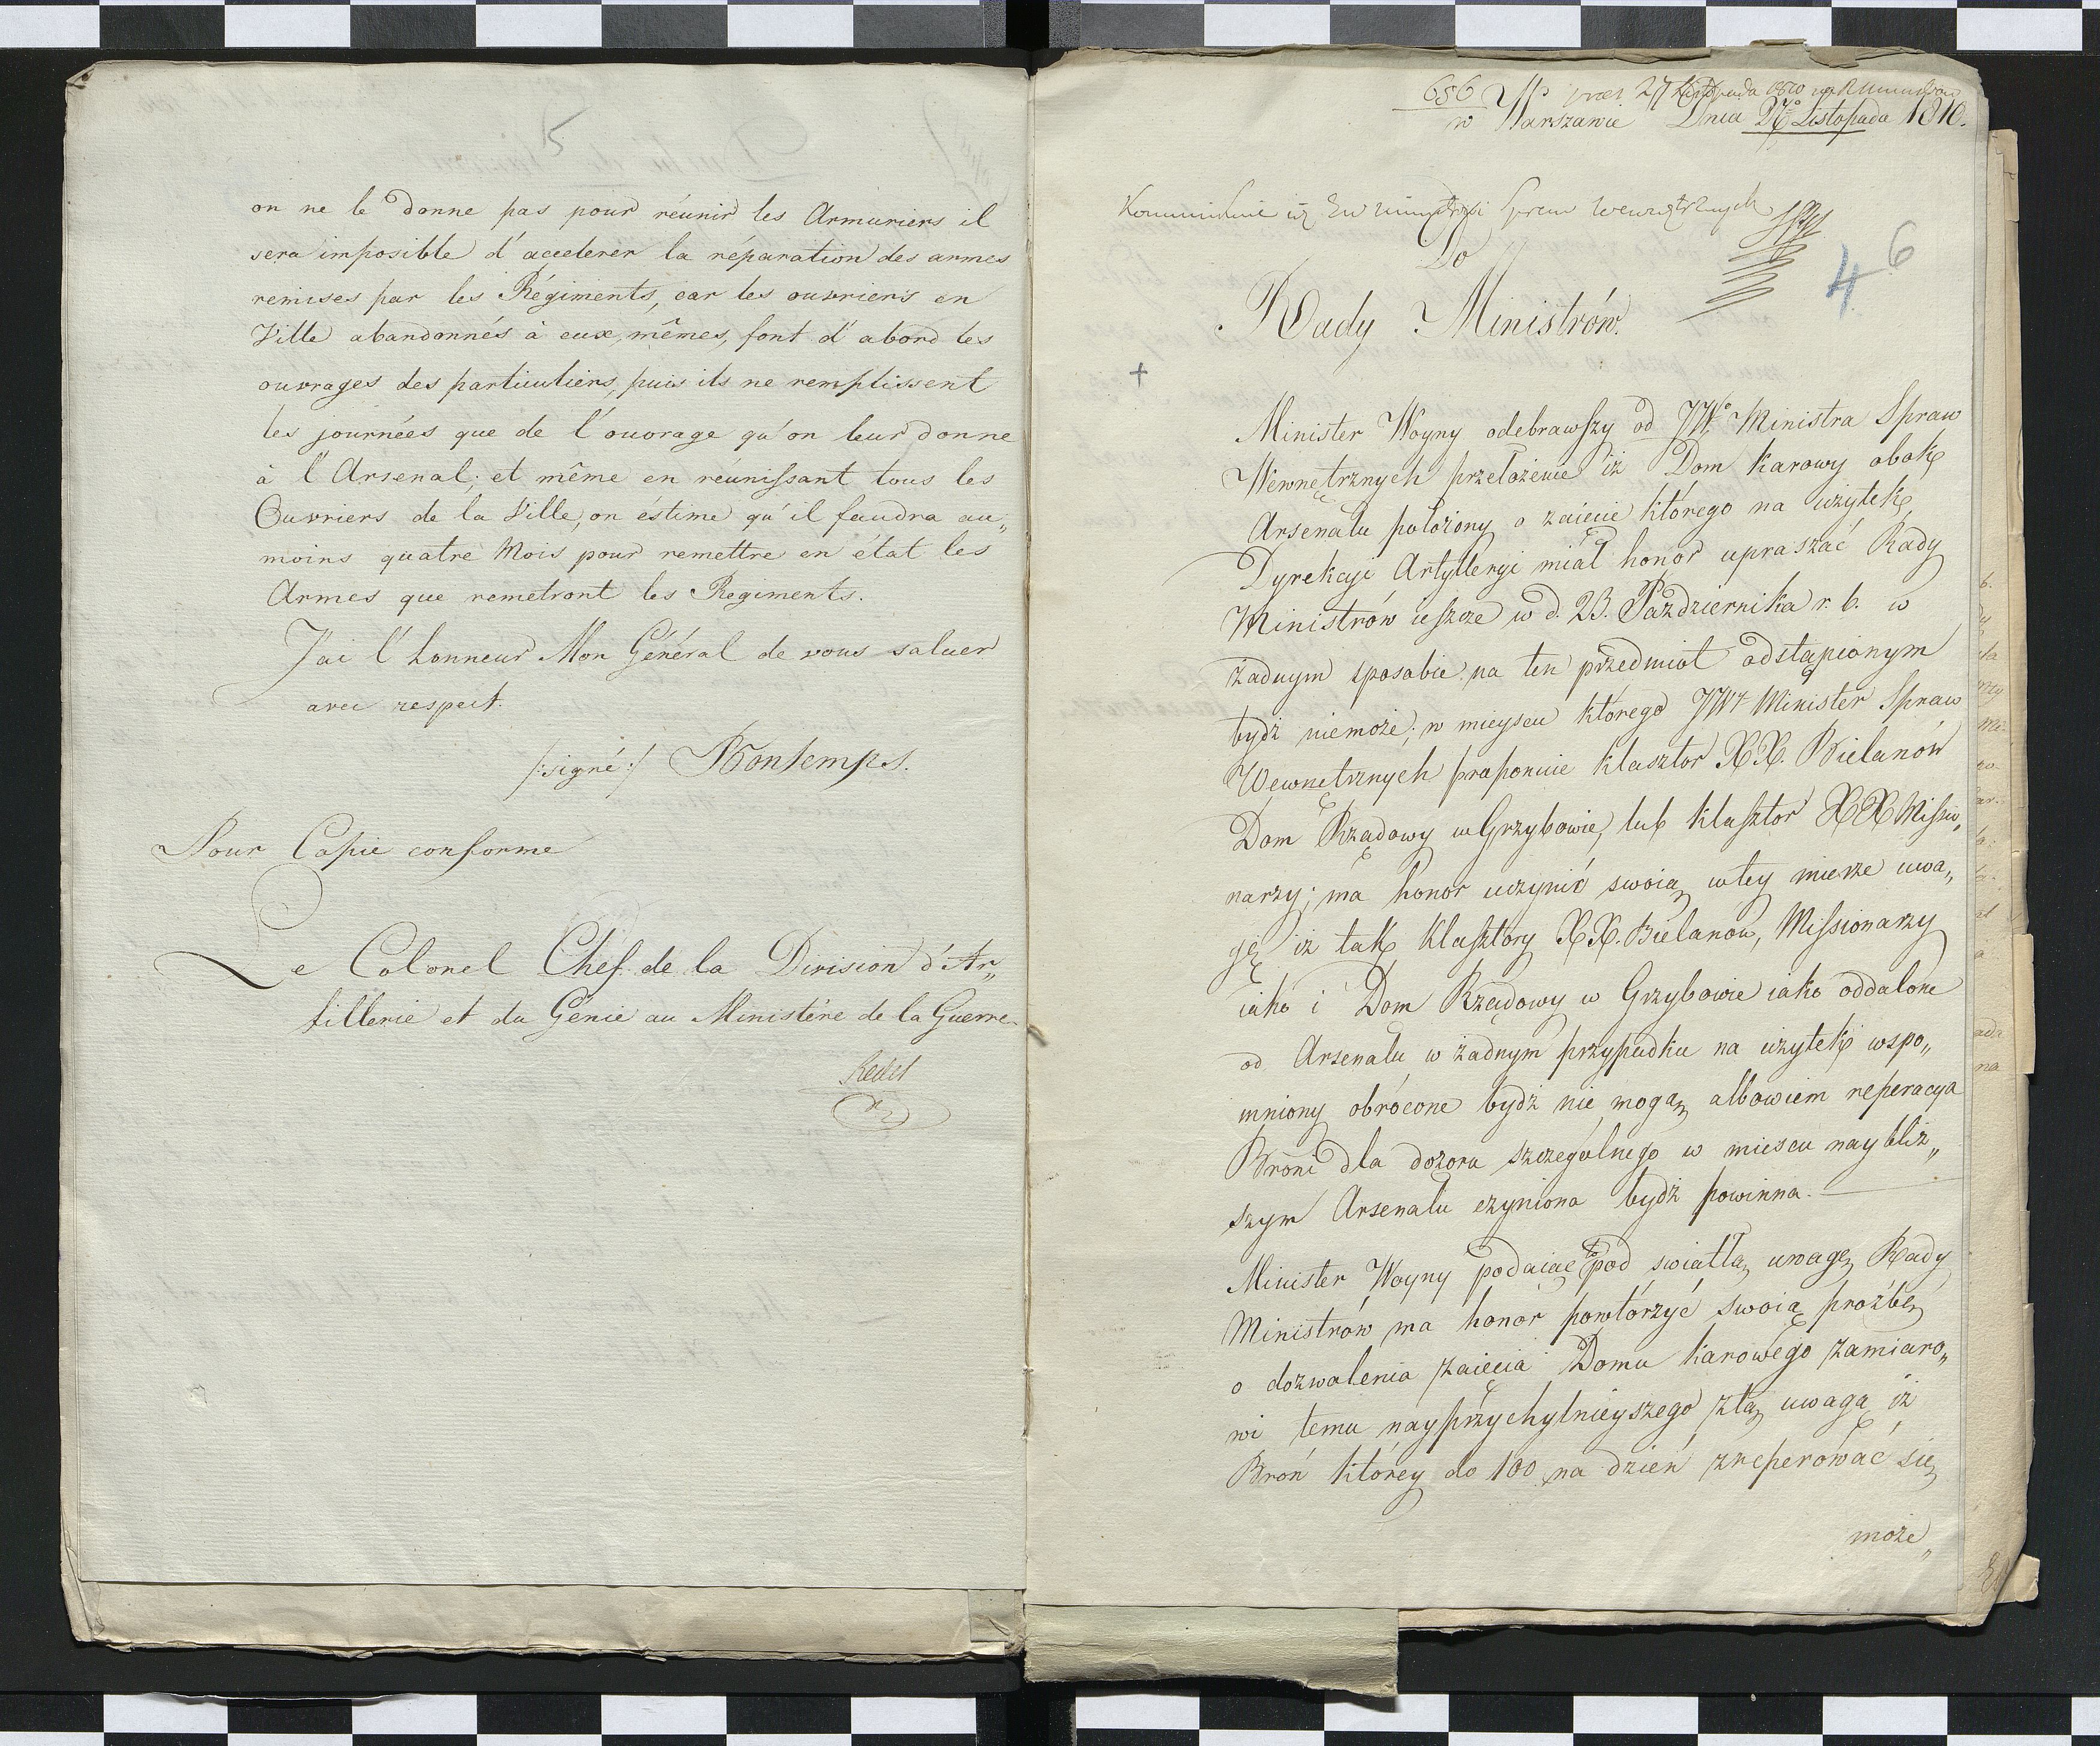 5
on ne le donne pas pour réunir les Armuriers il
sera imposible d'accelerer la réparation des armes
remises par les Régiments, car les ouvriers en
Ville abandonnés à eux, mêmes, font d'abord les
ouvrages des particuliers, puis ils ne remplissent
les journées que de l'ouvrage qu'on leur donne
à l'Arsenal; et même en réunissant tous les
Ouvriers de la Ville, on éstime qu'il faudra au„
moins quatre Mois pour remettre en état les
Armes que remetront les Regiments.
J'ai l'honneur Mon Général de vous saluer
avec respect.
/:signé:/ Bontemps.
Pour Copie conforme
Le Colonel Chef de la Division d'Ar„
tillerie et du Génie au Ministère de la Guerre
Redel
656 27 Listopada 1810
w Warszawie Dnia 27o Listopada 1810.
Spraw Wewnętrznych
Do
4 6
Rady Ministrów.
+
Minister Woyny odebrawszy od JWo Ministra Spraw
Wewnętrznych przełożenie iż Dom Karowy obok
Arsenału położony o zaięcie którego na użytek
Dyrekcyi Artylleryi miał honor upraszać Rady
Ministrów ieszcze w d. 23. Października r. b. w
żadnym sposobie na ten przedmiot odstąpionym
bydź niemoże; w mieyscu którego JWy Minister Spraw
Wewnętrznych proponuie klasztor XX. Bielanów
Dom Rządowy w Grzybowie, lub klasztor XX Missio„
narzy; ma honor uczynić swoią w tey mierze uwa„
gę iż tak Klasztory XX. Bielanow, Missionarzy
iako i Dom Rządowy w Grzybowie iako oddalone
od Arsenału w żadnym przypadku na użytek wspo„
mniony obrócone bydź nie mogą albowiem reperacya
Broni dla dozoru szczegulnego w miescu naybliż„
szym Arsenału czyniona bydź powinna.
Minister Woyny podaiąc to pod swiatłą uwagę Rady
Ministrów ma honor powtórzyć swoią prożbę
o dozwolenia zaięcia Domu karowego zamiaro„
wi temu nayprzychylnieyszego z tą uwagą iż
Broń którey do 100 na dzień zreperować się
może„